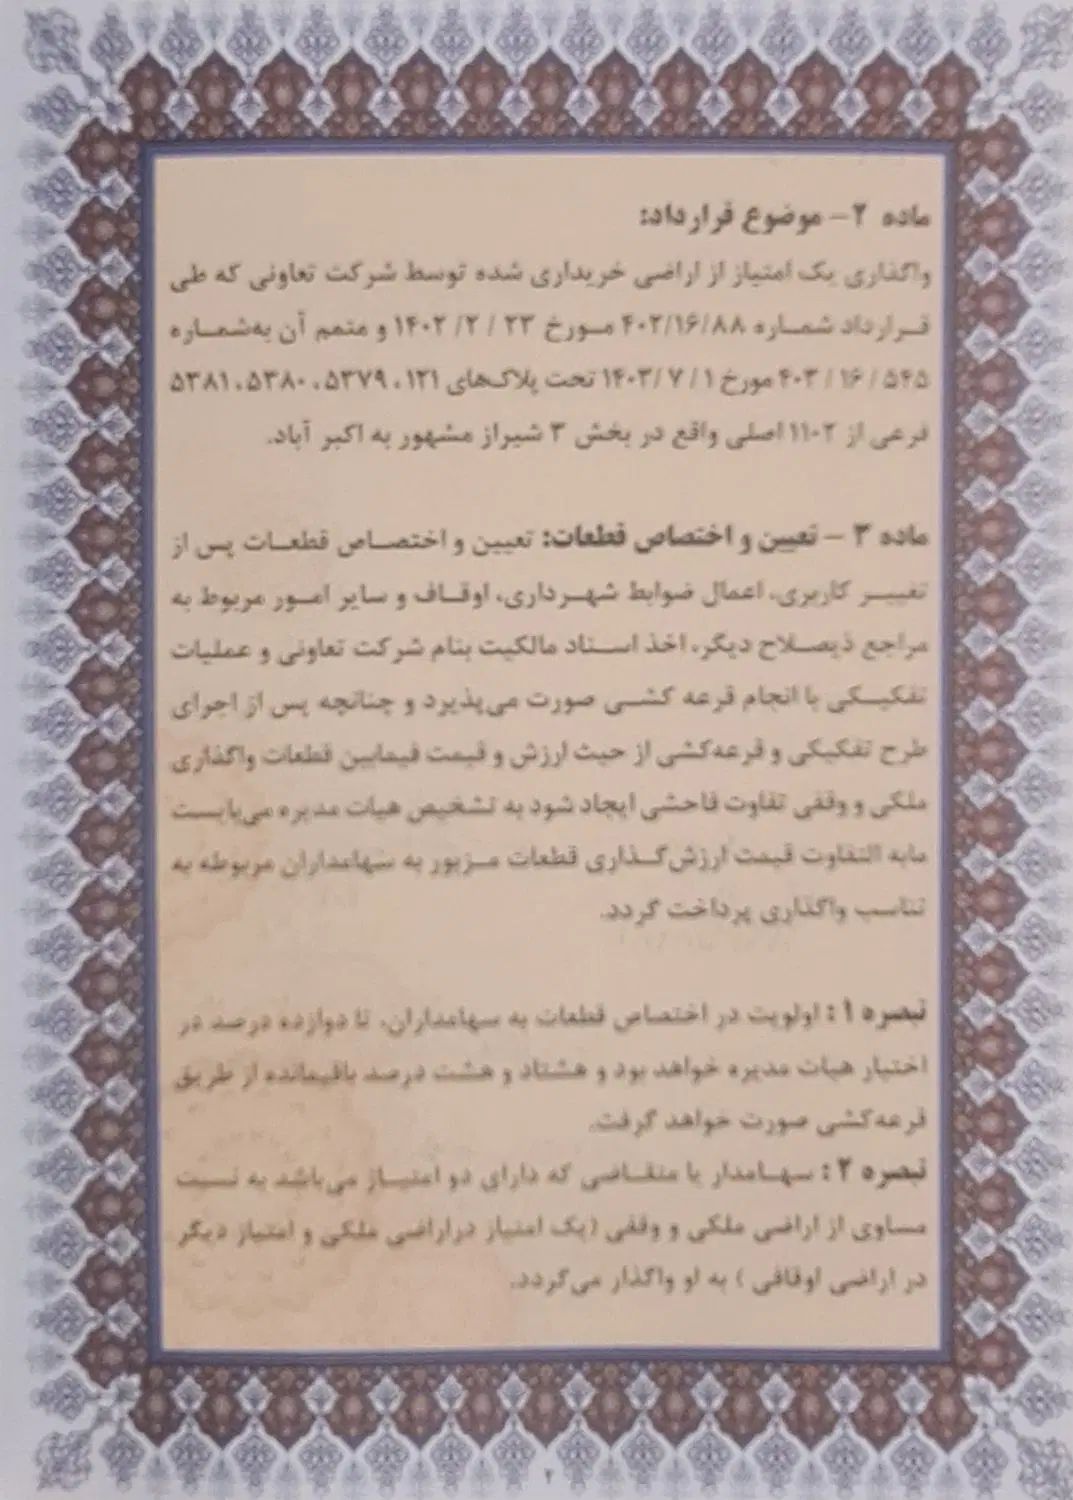 ماده ۲- موضوع قرارداد:
واگذاری یک امتیاز از اراضی خریداری شده توسط شرکت تعاونی که طی
قرارداد شماره ۴۰۲/۱۶/۸۸ مورخ ۲۳ / ۲/ ۱۴۰۲ و متمم آن به‌شماره
۵۴۵ / ۱۶ / ۴۰۳ مورخ ۱ / ۷ /۱۴۰۳ تحت پلاک‌های ۱۲۱، ۵۳۷۹، ۵۳۸۰، ۵۳۸۱
فرعی از ۱۱۰۲ اصلی واقع در بخش ۳ شیراز مشهور به اکبر آباد.
ماده ۳ - تعیین و اختصاص قطعات: تعیین و اختصاص قطعات پس از
تغییر کاربری، اعمال ضوابط شهرداری، اوقاف و سایر امور مربوط به
مراجع ذیصلاح دیگر، اخذ اسناد مالکیت بنام شرکت تعاونی و عملیات
تفکیکی با انجام قرعه کشی صورت می‌پذیرد و چنانچه پس از اجرای
طرح تفکیکی و قرعه‌کشی از حیث ارزش و قیمت فیمابین قطعات واگذاری
ملکی و وقفی تفاوت فاحشی ایجاد شود به تشخیص هیات مدیره می‌بایست
مابه التفاوت قیمت ارزش‌گذاری قطعات مزبور به سهامداران مربوطه به
تناسب واگذاری پرداخت گردد.
تبصره ۱ : اولویت در اختصاص قطعات به سهامداران، تا دوازده درصد در
اختیار هیات مدیره خواهد بود و هشتاد و هشت درصد باقیمانده از طریق
قرعه‌کشی صورت خواهد گرفت.
تبصره ۲ : سهامدار یا متقاضی که دارای دو امتیاز می‌باشد به نسبت
مساوی از اراضی ملکی و وقفی (یک امتیاز دراراضی ملکی و امتیاز دیگر
در اراضی اوقافی ) به او واگذار می‌گردد.
۲